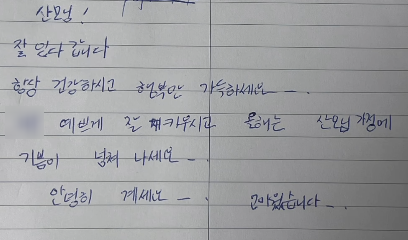 산모님!
잘 있다 갑니다
항상 건강하시고 행복만 가득하세요 ㅡ.
예쁘게 잘 키우시고 올해는 산모님 가정에
기쁨이 넘쳐 나세요 ㅡ.
안녕히 계세요 ㅡ. 고마웠습니다 ㅡ.